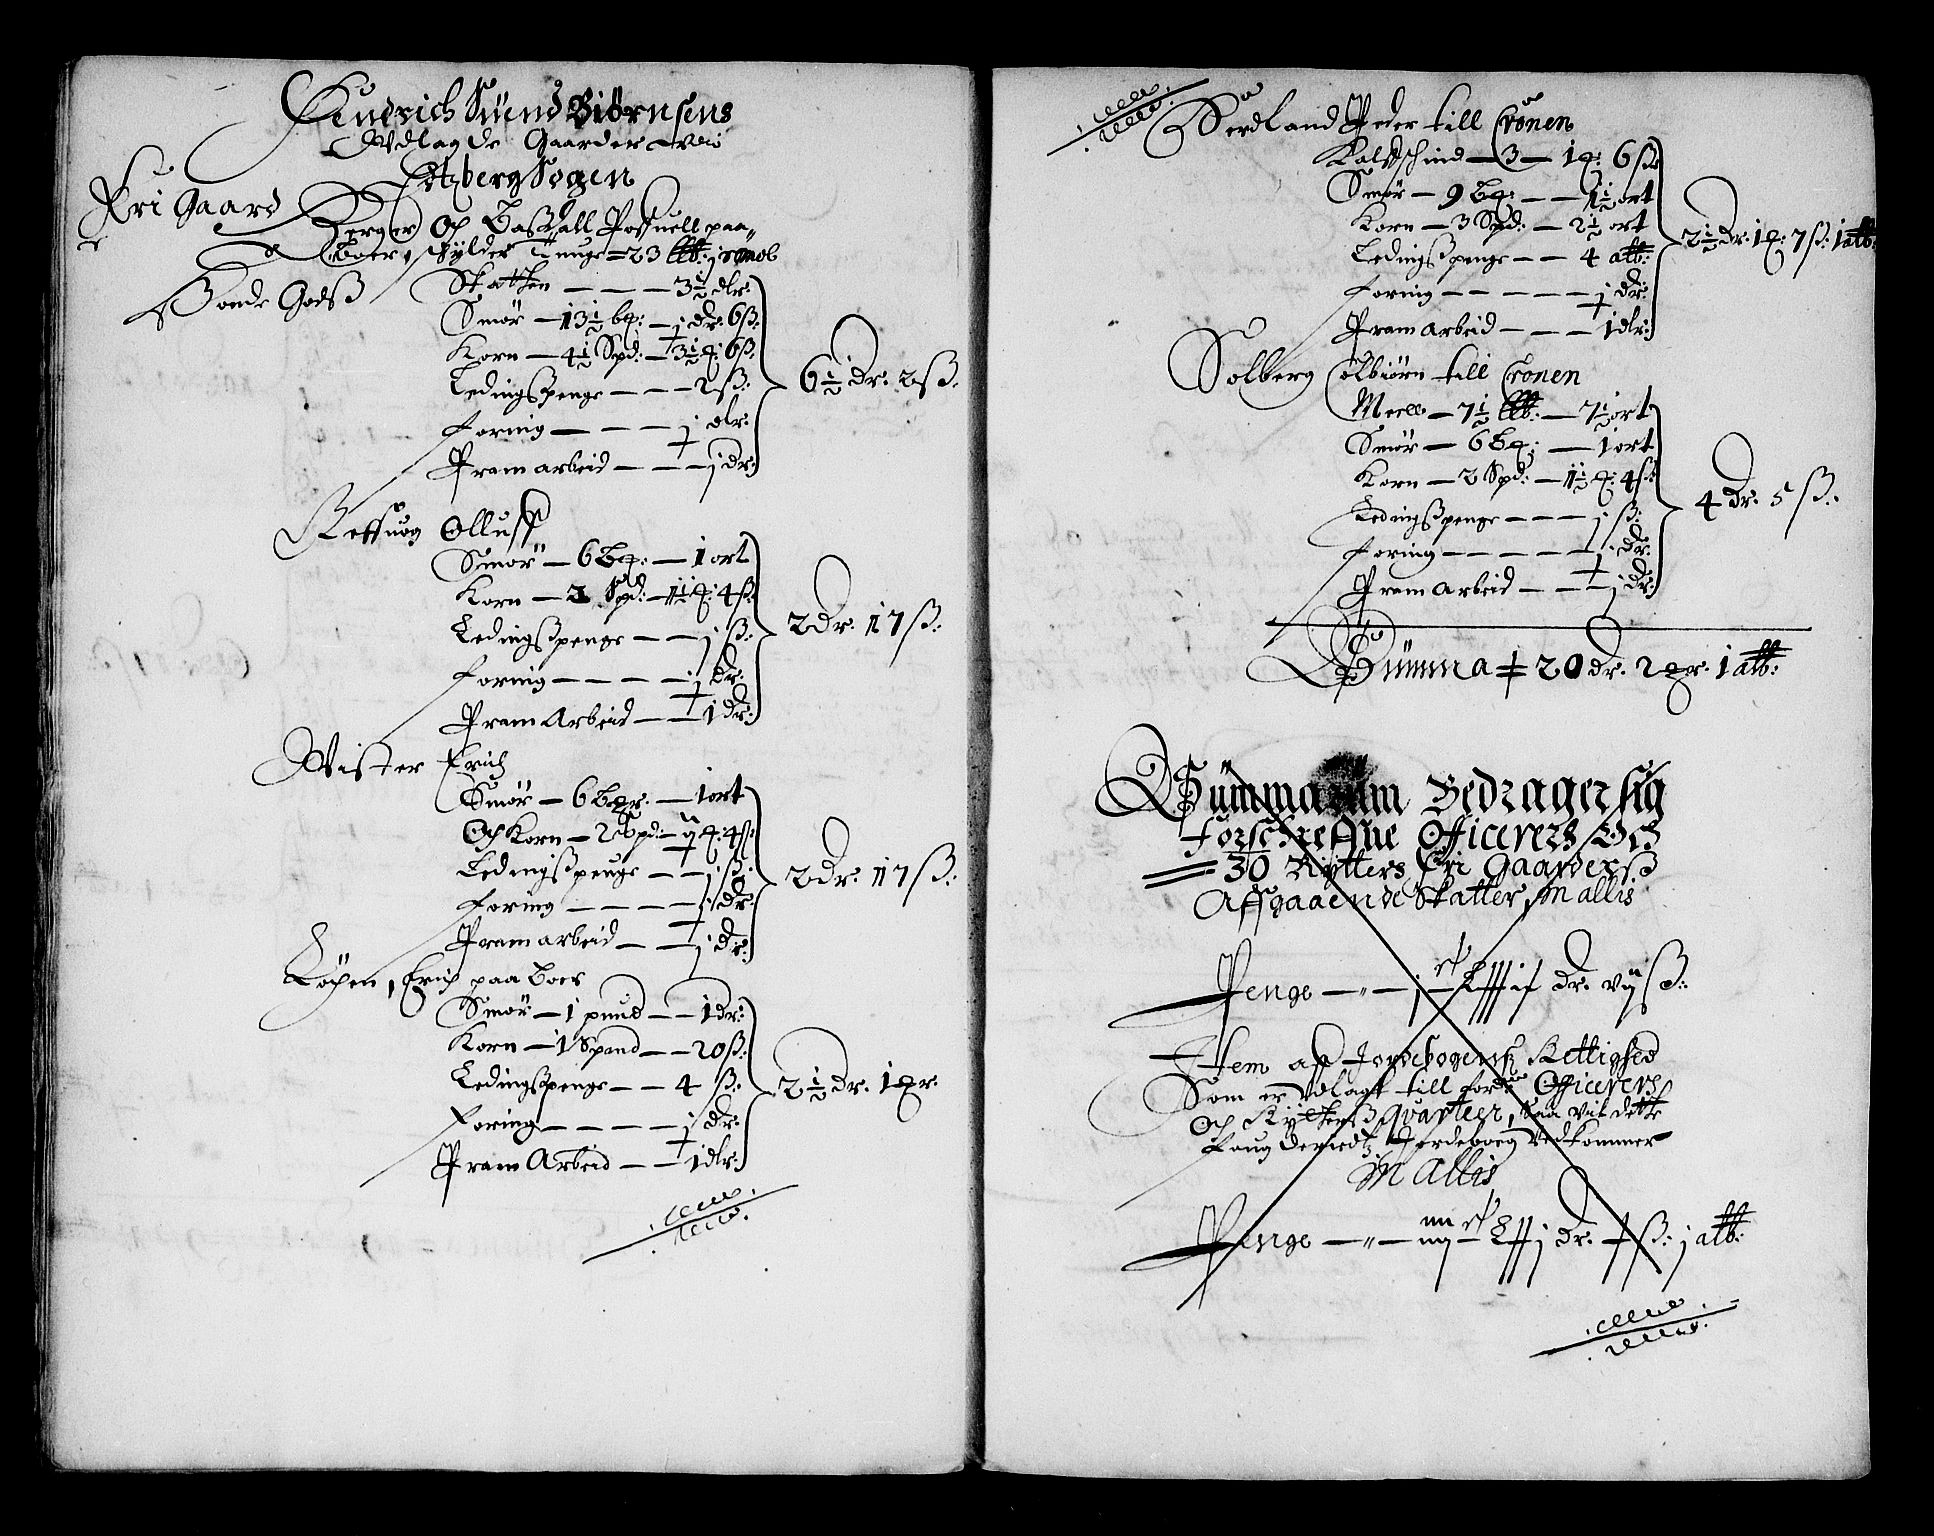 Hendrich Suend Biørnsens
Wdlagde Gaarder wdi
Edtzberg Sogen
Fri Gaard
Berger Och Baskall Poffuell paa
Boer, skylder Tunge = 23 j
Bonde Godß
Skatten — — — 3½ dlr:
Smør — 13½ bp: — j dr: 6 ß:
Korn — 4½ Spd: — 3½ p: 6 ß:
Ledingßpenge — — — 2 ß:
Foring — — — — j dlr:
Pram arbeid — — — j dr:
6½ dr. 2 ß.
Reffuog Olluff
Smør — 6 bp: — 1 ort
Korn — 2 Spd: — 1½ p: 4 ß:
Ledingßpenge — — j ß:
Foring — — — — j dr:
Pram Arbeid — — 1 dr:
2 dr. 17 ß:
Wister Erich
Smør — 6 bpr. — 1 ort
Och Korn — 2 Spd: — p: 4 ß:
Ledingßpenge — — j ß:
Foring — — — — j dr:
Pram arbeid — — j dr:
2 dr. 17 ß:
Løchen, Erich paa Boer
Smør — 1 pund — — 1 dr:
Korn — 1 Spand — — 20 ß:
Ledingßpenge — — 4 ß:
Foring — — — — j dr:
Pram Arbeid — — 1 dlr:
2½ dr. 1 pr.
Serdland Peder till Cronen
Kalffschind — 3 — 1 p: 6 ß:
Smør — 9 bp: — — 1½ ort
Korn — 3 Spd: — 2½ ort
Ledingßpenge — — 4 alb:
Foring — — — — — j dr:
Pram arbeid — — — 1 dlr:
2½ dr. 1 p: 7 ß: 1 alb:
Solberg Colbiørn till Cronen
Meell — 7½ — 7½ ort
Smør — 6 bp: — 1 ort
Korn — 2 Spd: — 1½ p: 4 ß:
Ledingßpenge — — — j ß:
Foring — — — — — j dr:
Pram Arbeid — — j dr:
4 dr. 5 ß:
Summa 20 dr. 2 pr. 1 alb:
Summarum Bedrager sig
Forschreffne Officerers Och
30 Rytters Fri Gaarders
Affgaaende Skatter, in allis
Penge — „ — dr. vij ß:
Item aff Jordebogensk Rettighed
Som er Vdlagt till fordne Officerers
Och Rytterß Quarteer, Saa vit dette
Foug Jordeboeg Vedkommer
in Allis
Penge — „ — dr. ß: j alb: